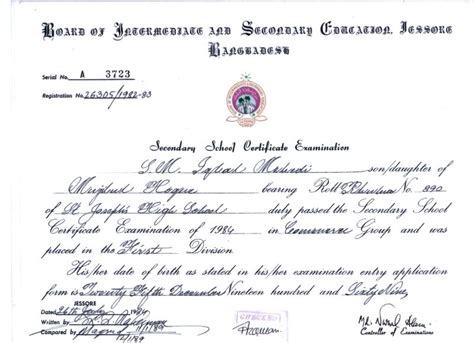 Board of Intermediate and Secondary Education, Jessore
Bangladesh
Serial No. A 3723
Registration No. 26305/1982-83
Secondary School Certificate Examination
S.M. Iqbal son/daughter of
Haque bearing Roll No. 890
of St. Joseph's High School duly passed the Secondary School
Certificate Examination of 1984 in Commerce Group and was
placed in the First Division.
His/her date of birth as stated in his/her examination entry application
form is Twenty Fifth December Nineteen hundred and Sixty Nine
JESSORE
26th July 1984
Written by
Compared by
12/1/89
CHECKED
Controller of Examinations